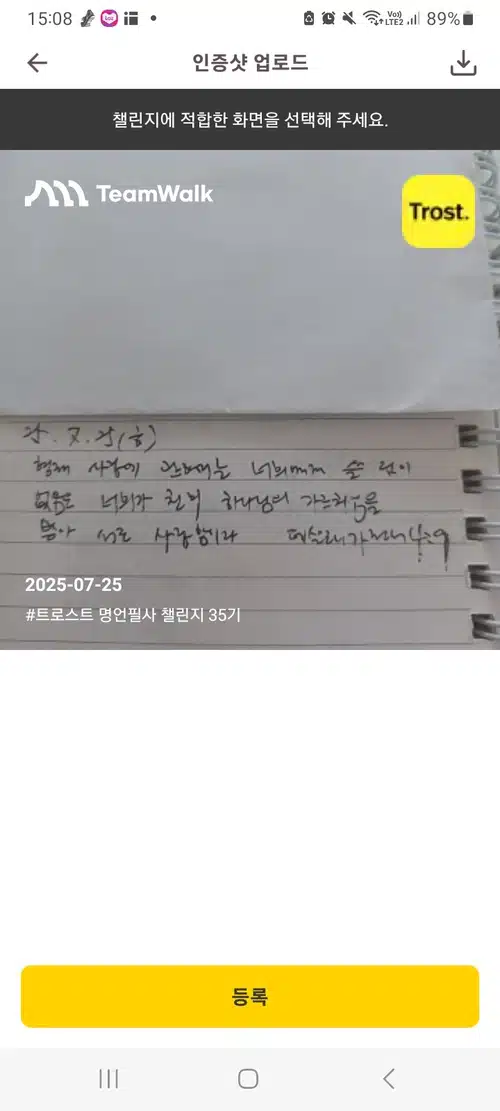 15:08
Vo))
LTE2
89%
인증샷 업로드
챌린지에 적합한 화면을 선택해 주세요.
TeamWalk
Trost.
형제 사랑에 관하여는 너희에게 쓸 것이
없음은 너희가 친히 하나님의 가르치심을
받아 서로 사랑함이라 데살로니가전서 4:9
2025-07-25
#트로스트 명언필사 챌린지 35기
등록